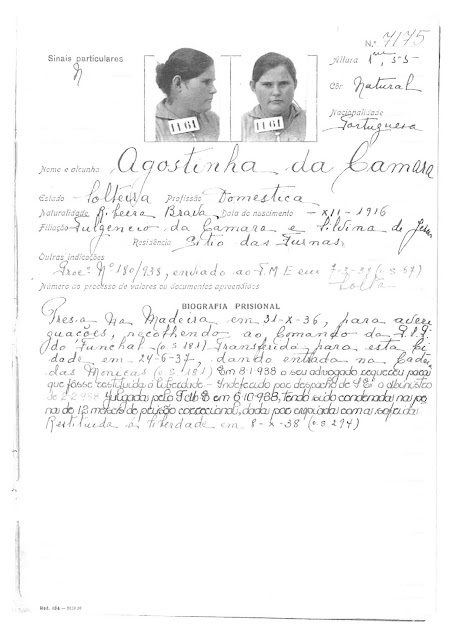 N.º 7175
Sinais particulares
N
Altura 1m,55
Côr Natural
Nacionalidade
Portuguesa
1161
1161
Nome e alcunha Agostinha da Camara
Estado Solteira Profissão Domestica
Naturalidade R. beira Brava Data do nascimento -XII-1916
Filiação Fulgencio da Camara e de Jesus
Residência Sitio das Furnas
Outras indicações
Proc.º N.º 180/938, enviado ao T M E em
Número ao processo de valores ou documentos apreendidos Solta
BIOGRAFIA PRISIONAL
Presa na Madeira em 31-X-36, para averi
guações, recolhendo ao Comando da P.S.P.
do Funchal (o.s 181) Transferida para esta ci
dade em 24-6-37, dando entrada na Cadeia
das Monicas (o.s 181) Em 8-1-938 o seu advogado requereu para
que fosse restituida à liberdade - Indeferido por despacho de S. Ex.ª o Ministro
de 2-2-938 Julgada pelo T.M.E em 6-10-938, tendo sido condenada na pe
na de 12 meses de prisão correccional, dada por expiada com a sofrida
Restituida à liberdade em 8-X-38 (o.s 294)
Mod. 194